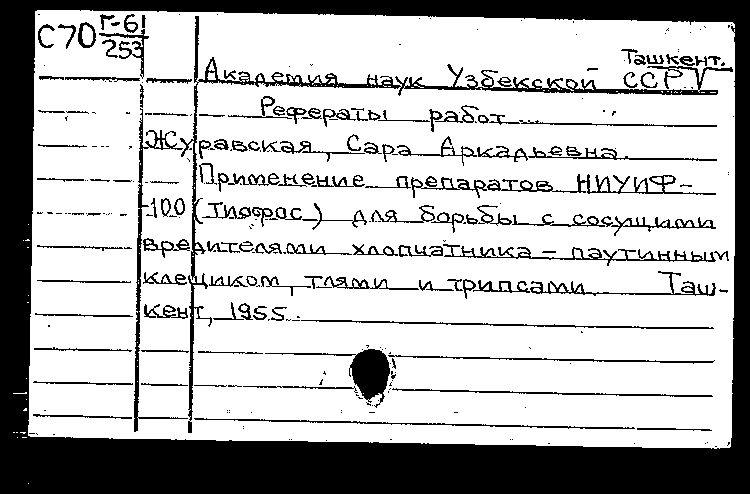 С70 Г-61/253
Ташкент.
Академия наук Узбекской ССР
Рефераты работ...
Журавская, Сара Аркадьевна.
Применение препаратов НИУИФ-
-100 (тиофос) для борьбы с сосущими
вредителями хлопчатника – паутинным
клещиком, тлями и трипсами. Таш-
кент, 1955.